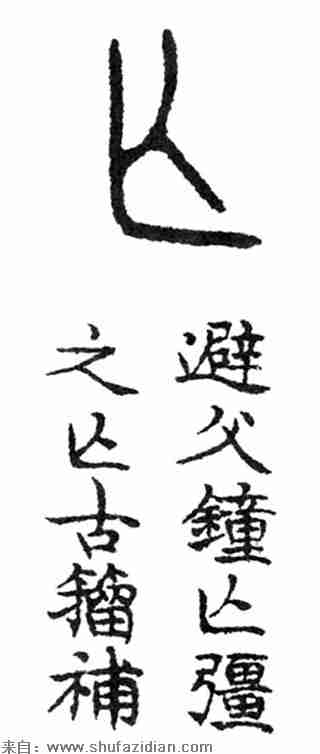 亾
避父鐘亾彊
之亾古籀補
来自：www.shufazidian.com